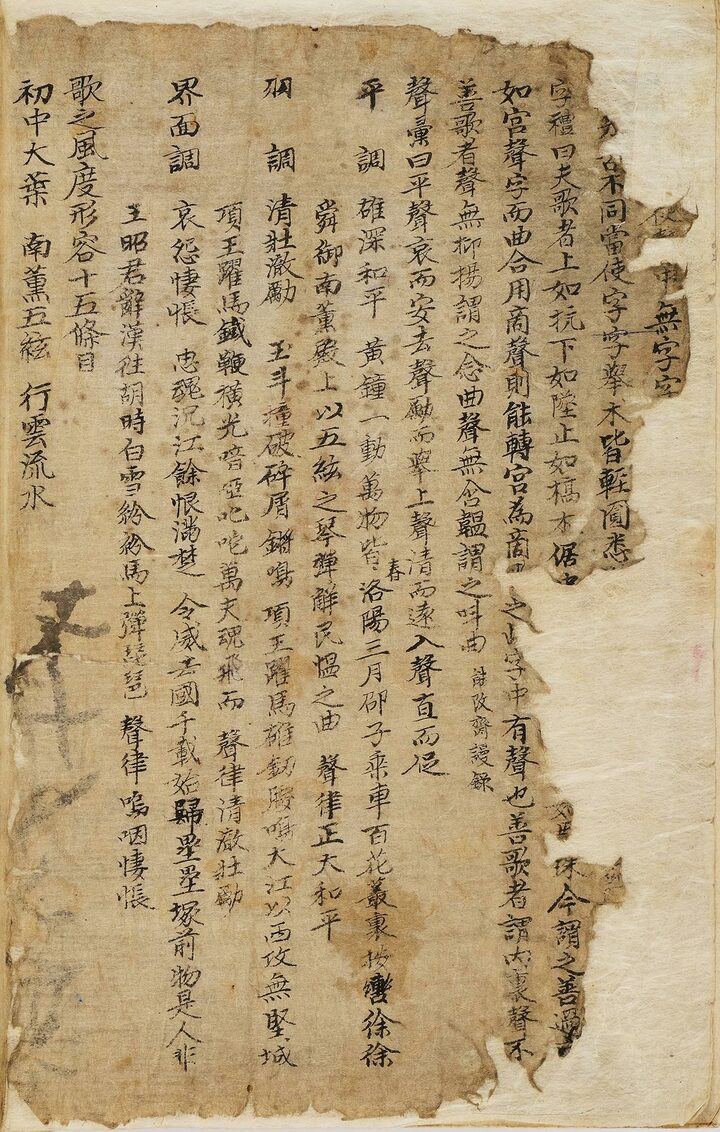 無字字
不同當使字字擧本皆輕圓悉
珠今謂之善過
字禮曰夫歌者上如抗下如墜止如槁木倨中
如宮聲字而曲合用商聲則能轉宮為商
之此字中有聲也善歌者謂內裏聲不
善歌者聲無抑揚謂之念曲聲無含韞謂之叫曲 能改齋謾錄
聲彙曰平聲哀而安去聲勵而擧上聲清而遠入聲直而促
平 調 雄深和平 黃鐘一動萬物皆春 洛陽三月邵子乘車百花叢裏按轡徐徐
舜御南薰殿上以五絃之琴彈解民慍之曲 聲律正大和平
羽 調 清壯澈勵 玉斗撞破碎屑鏘鳴 項王躍馬雄釰腰鳴大江以西攻無堅城
項王躍馬鐵鞭橫光喑啞叱咤萬夫魂飛而 聲律清澈壯勵
界面調 哀怨悽悵 忠魂沉江餘恨滿楚 令威去國千載始歸壘壘塚前物是人非
王昭君辭漢往胡時白雪紛紛馬上彈琵琶 聲律嗚咽悽悵
歌之風度形容十五條目
初中大葉 南薰五絃 行雲流水